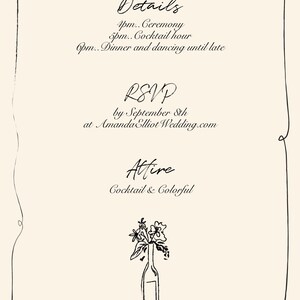 Details
4pm.. Ceremony
5pm.. Cocktail hour
6pm.. Dinner and dancing until late
RSVP
by September 8th
at AmandaElliotWedding.com
Attire
Cocktail & Colorful